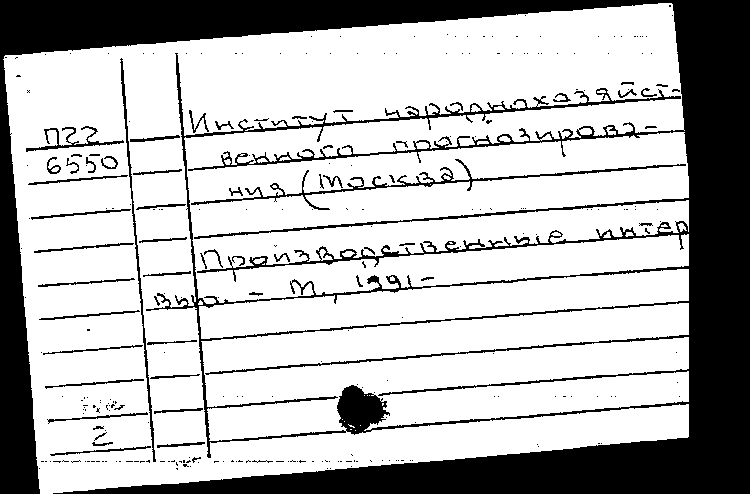 П22
6550
Институт народнохозяйст-
венного прогнозирова-
ния (Москва)
Производственные интер
вып. - М., 1991-
2